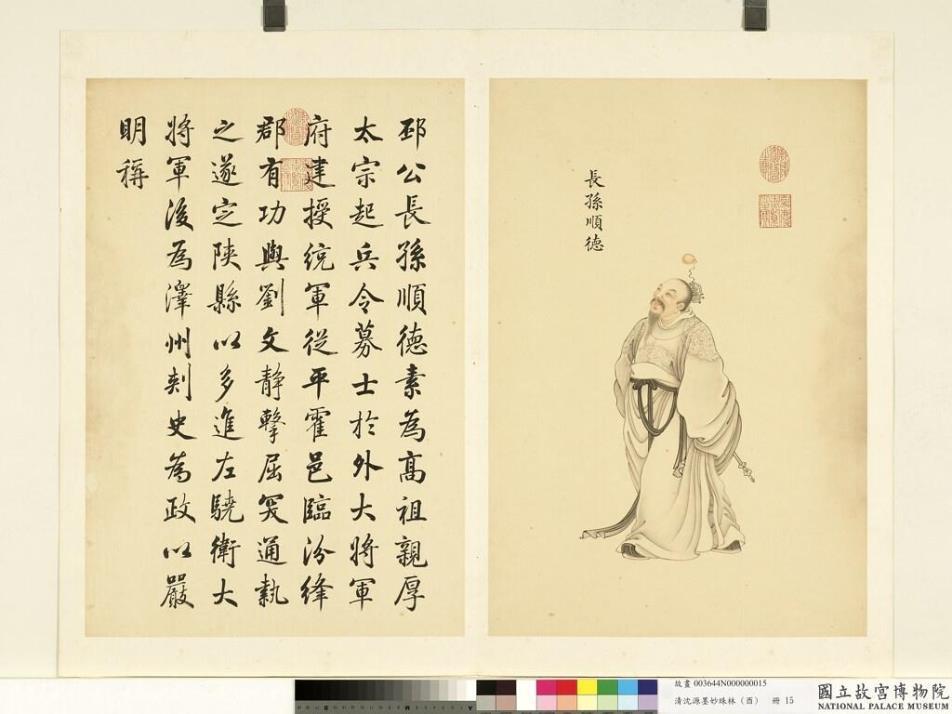 長孫順德
邳公長孫順德素為高祖親厚
太宗起兵令募士於外大將軍
府建授統軍從平霍邑臨汾絳
郡有功與劉文靜擊屈突通執
之遂定陝縣以多進左驍衛大
將軍後為澤州刺史為政以嚴
明稱
故畫 003644N000000015
清沈源墨妙珠林（酉） 冊 15
國立故宮博物院
NATIONAL PALACE MUSEUM